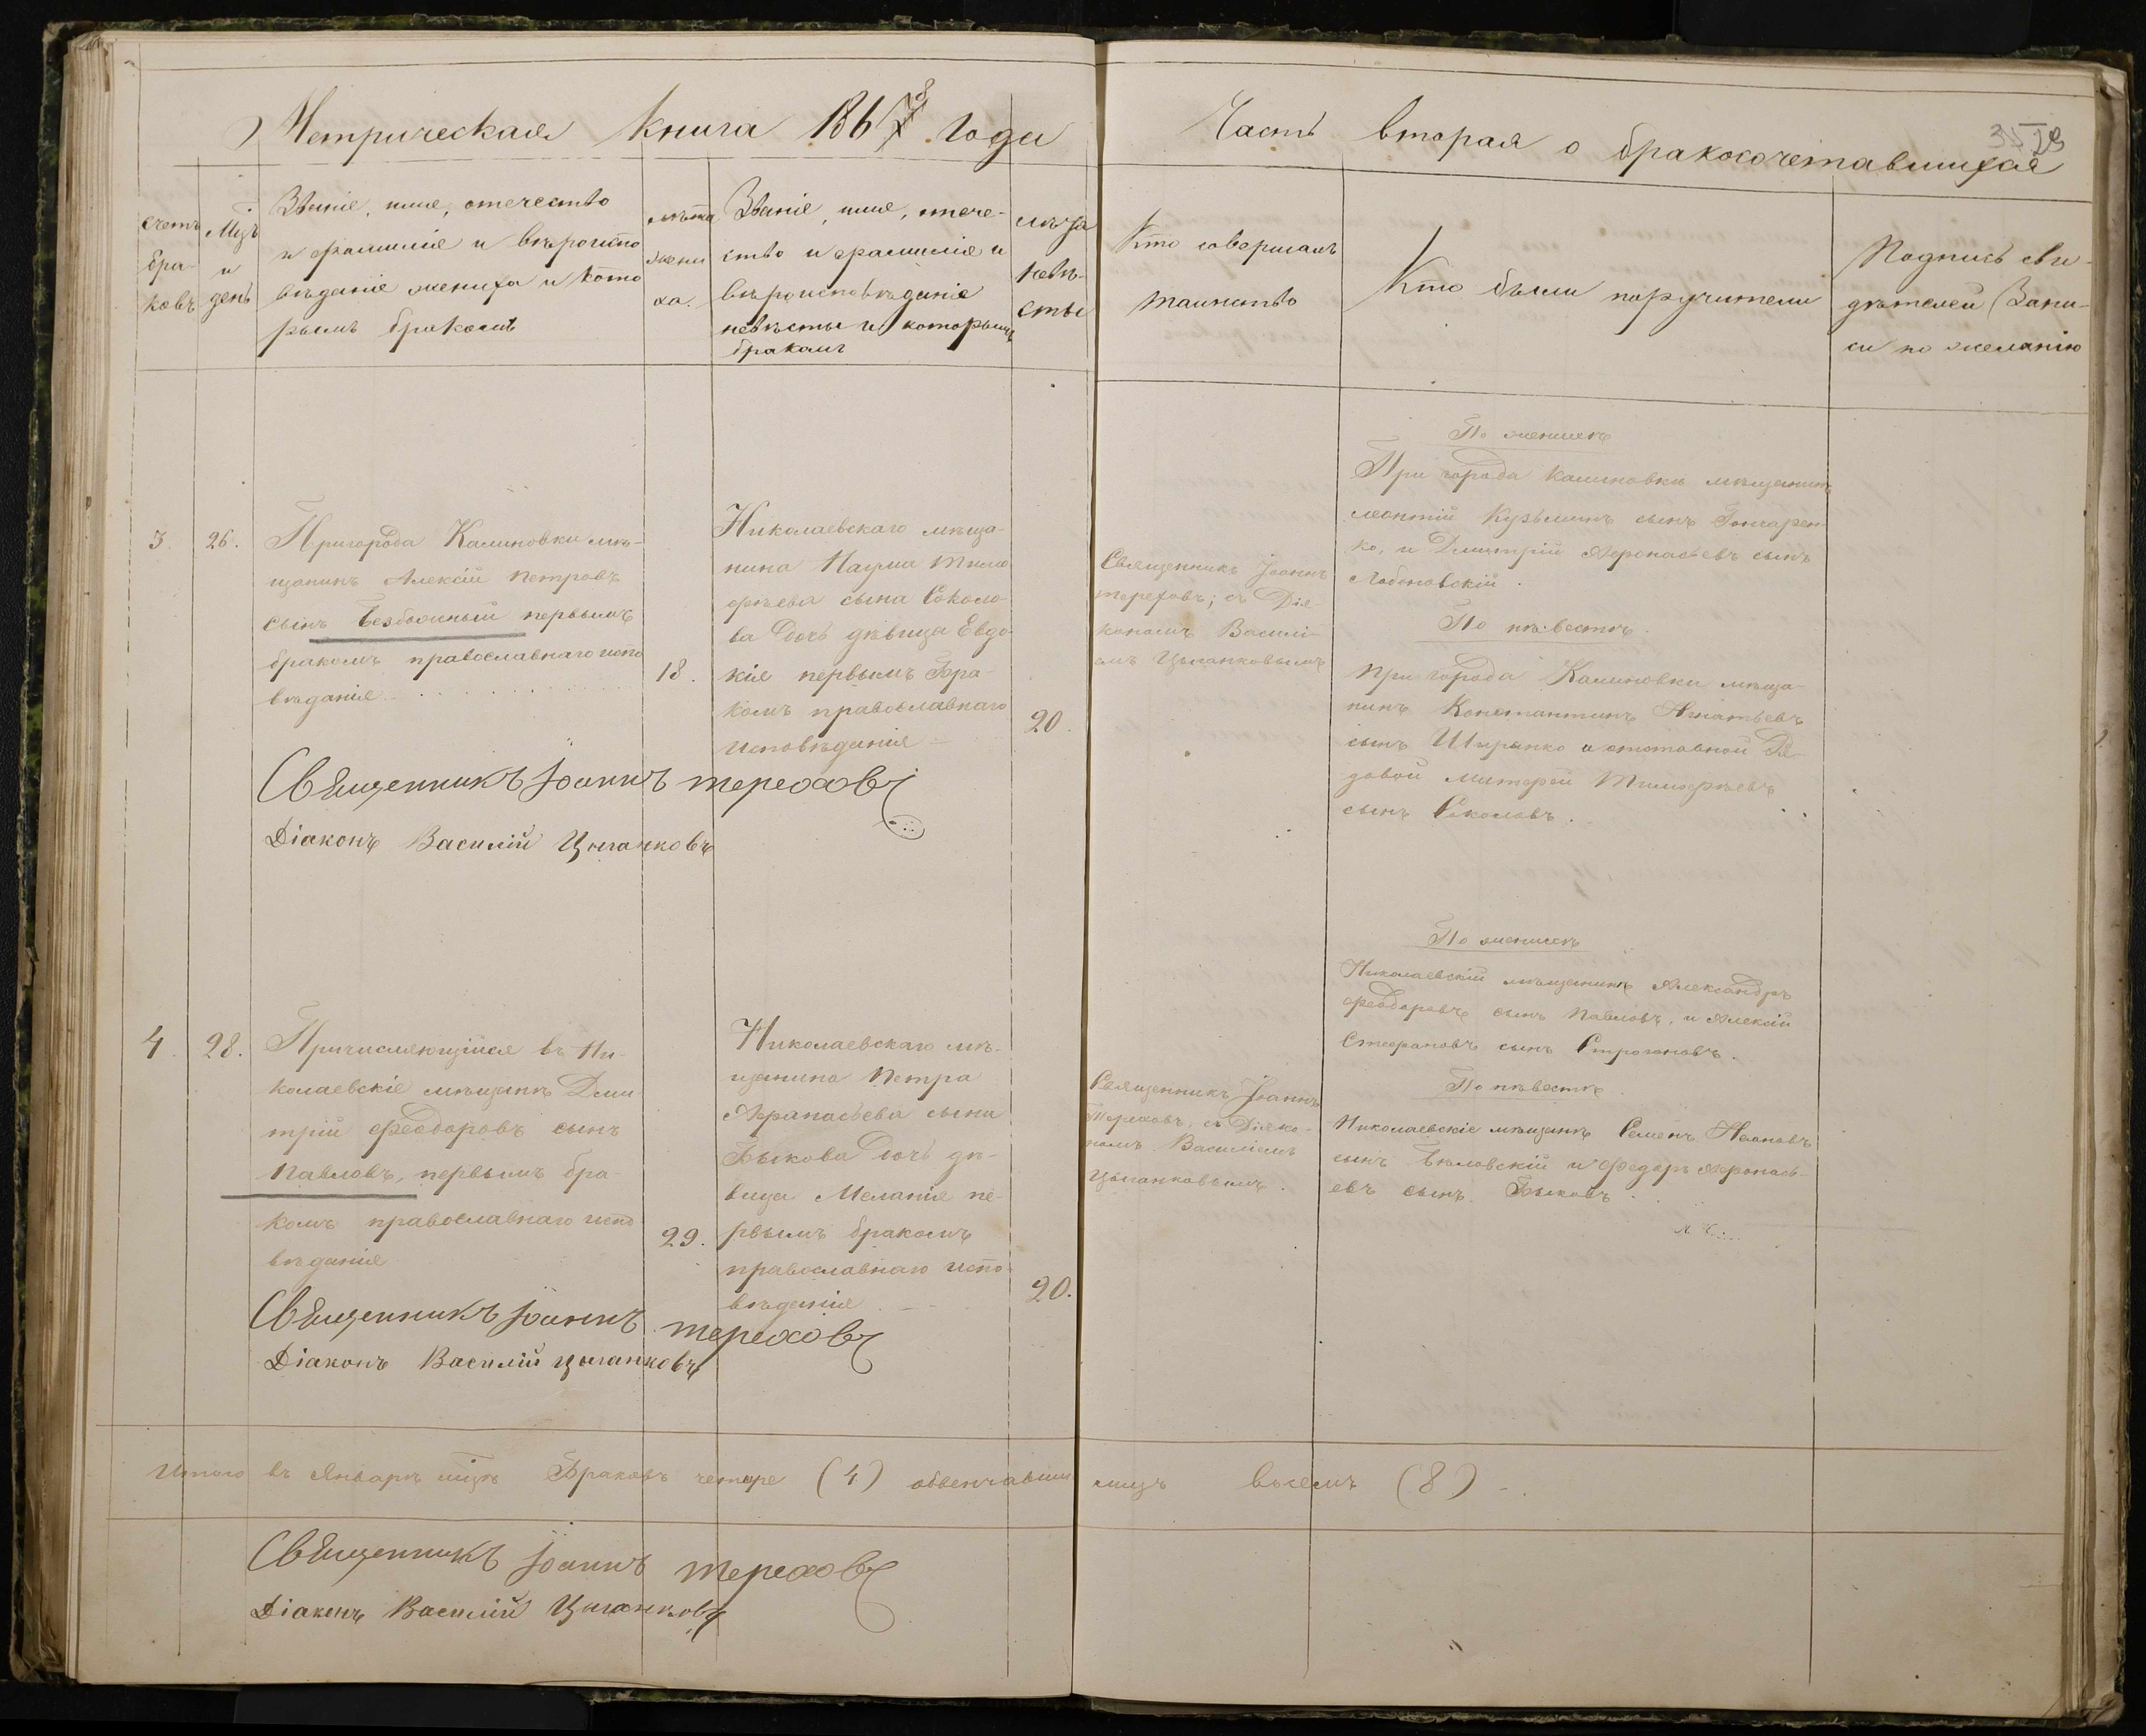 Метрическая книга 1868 года
Часть вторая о бракосочетавшихся
29
Счетъ
бра-
ковъ
Мцъ
и
день
Званіе, имя, отечество
и фамилія и вѣроиспо
вѣданіе жениха и кото
рымъ бракомъ
лѣта
жени
ха.
Званіе, имя, отече-
ство и фамилія и
вѣроисповѣданіе
невѣсты и которымъ
бракомъ
лѣта
невѣ-
сты
Кто совершалъ
таинство
Кто были поручители
Подпись сви-
дѣтелей (Запи-
си по желанію
3.
26.
Пригорода Калиновки мѣ-
щанинъ Алексій Петровъ
сынъ Безбожный первымъ
бракомъ православнаго испо
вѣданія
18.
Николаевскаго мѣща-
нина Наума Тимо
фѣева сына Соколо
ва дочь дѣвица Евдо
кія первымъ Бра-
комъ православнаго
исповѣданія
20.
Священникъ Іоаннъ
Тереховъ; съ Дія-
кономъ Василі-
емъ Цыганковымъ
По женихѣ
При города Калиновки мѣщанинъ
Леонтій Кузьминъ сынъ Гончарен-
ко, и Дмитрій Афонасьевъ сынъ
Лобановскій.
По невѣстѣ.
При города Калиновки мѣща-
нинъ Константинъ Игнатьевъ
сынъ Ширянко и отставной Ря-
довой Тимофѣевъ
сынъ Соколовъ.
Священникъ Іоаннъ Тереховъ
Діаконъ Василій Цыганковъ
4.
28.
Причисляющійся въ Ни-
колаевскіе мѣщане Дми
трій Феодоровъ сынъ
Павловъ, первымъ бра-
комъ православнаго испо
вѣданія
29.
Николаевскаго мѣ-
щанина Петра
Афанасьева сына
Быкова дочь дѣ-
вица Меланія пе-
рвымъ бракомъ
православнаго испо-
вѣданія
20.
Священникъ Іоаннъ
Тереховъ, съ Діяко-
номъ Василіемъ
Цыганковымъ.
По женихѣ
Николаевскій мѣщанинъ Александръ
Феодоровъ сынъ Павловъ, и Алексій
Стефановъ сынъ Строгоновъ.
По невѣстѣ
Николаевскіе мѣщане Семенъ Ивановъ
сынъ Бѣловскій и Федоръ Афонась-
евъ сынъ Быковъ
Священникъ Іоаннъ Тереховъ
Діаконъ Василій Цыганковъ
Итого въ Январѣ мцѣ Браковъ четыре (4) обвенчавши лицъ восемъ (8)
Священникъ Іоаннъ Тереховъ
Діаконъ Василій Цыганковъ